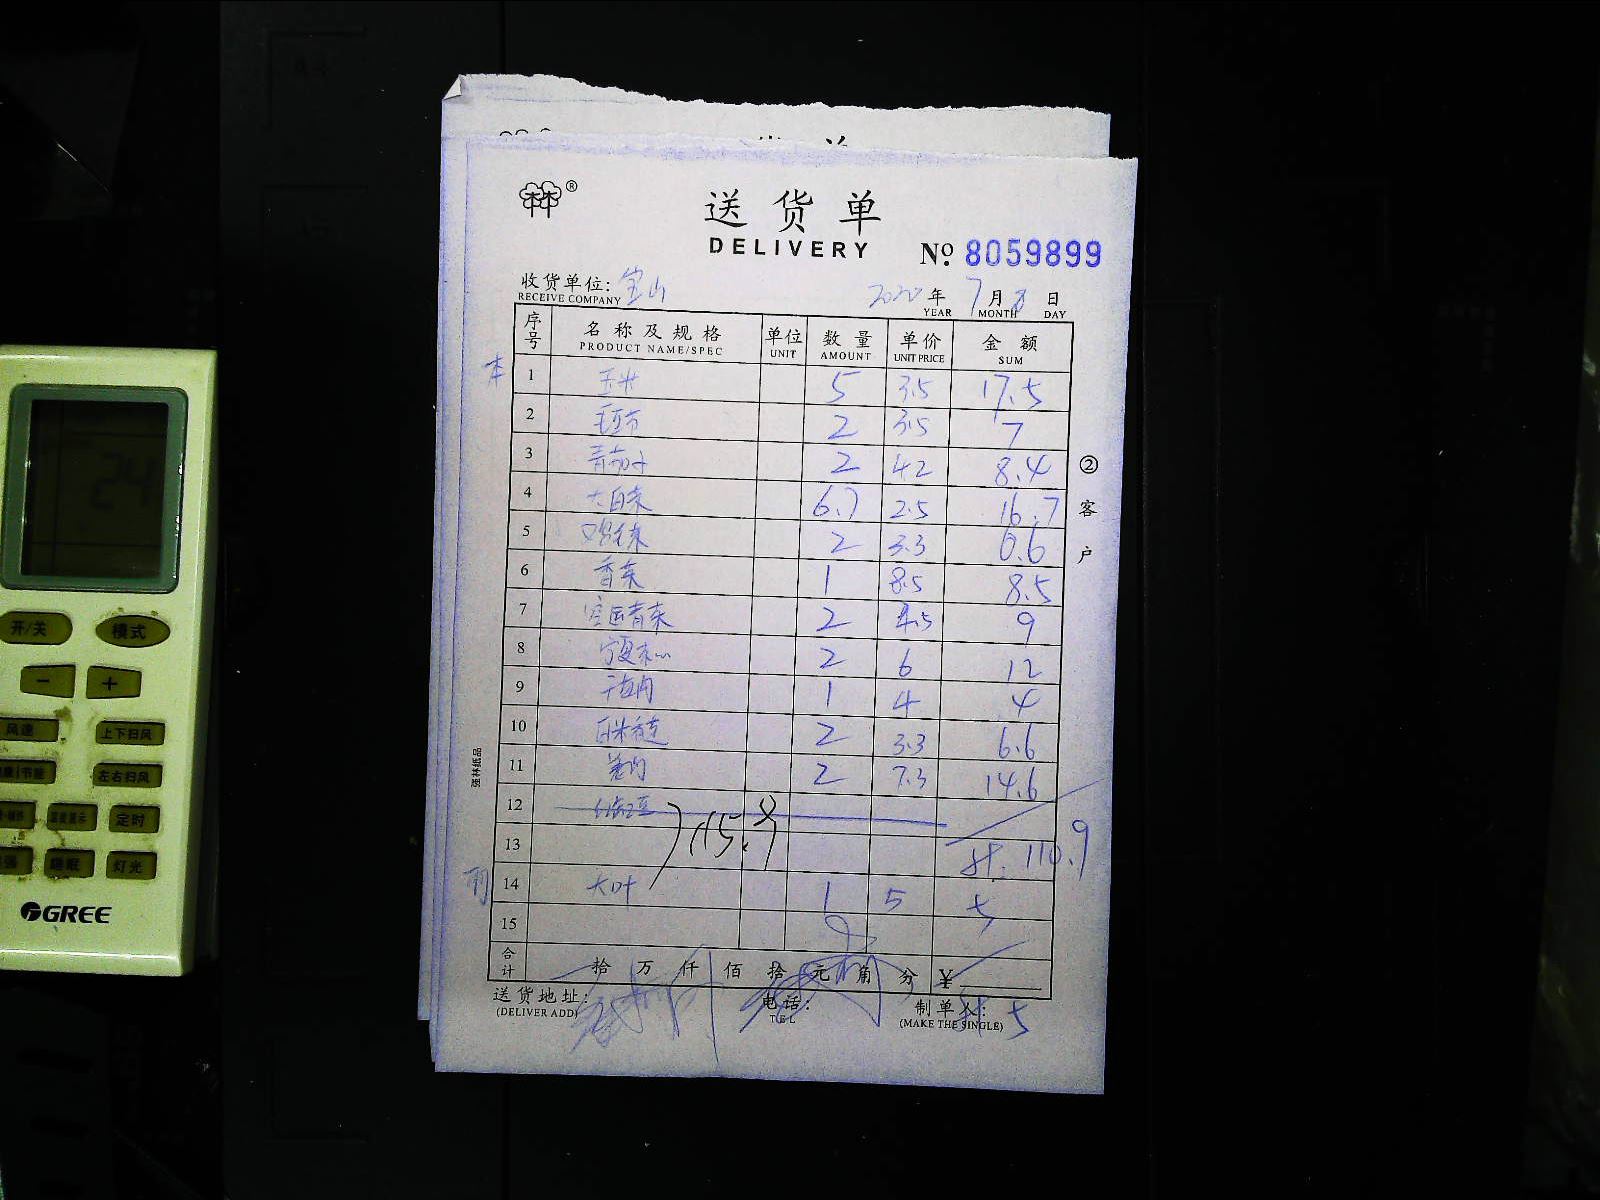 24
开/关 模式
− +
风速 上下扫风
左右扫风
定时
睡眠 灯光
GREE
®
送货单
DELIVERY
№ 8059899
收货单位: 宝山
RECEIVE COMPANY
2020年 7月 8日
YEAR MONTH DAY
序号 名称及规格 单位 数量 单价 金额
PRODUCT NAME/SPEC UNIT AMOUNT UNIT PRICE SUM
本
1 玉米 5 3.5 17.5
2 2 3.5 7
3 青茄子 2 4.2 8.4
4 大白菜 6.7 2.5 16.7
5 2 3.3 6.6
6 香菜 1 8.5 8.5
7 2 4.5 9
8 宁夏菜心 2 6 12
9 1 4 4
10 2 3.3 6.6
11 2 7.3 14.6
12
115.9
13 计: 110.9
14 大叶 1 5 5
15
合计 拾 万 仟 佰 拾 元 角 分 ¥
送货地址: 电话: 制单人:
(DELIVER ADD) TEL (MAKE THE SINGLE)
计 5
② 客户
强林纸品